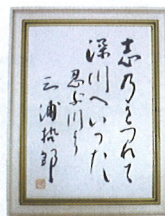 志乃をつれて
深川へいった
忍ぶ川より
三浦哲郎